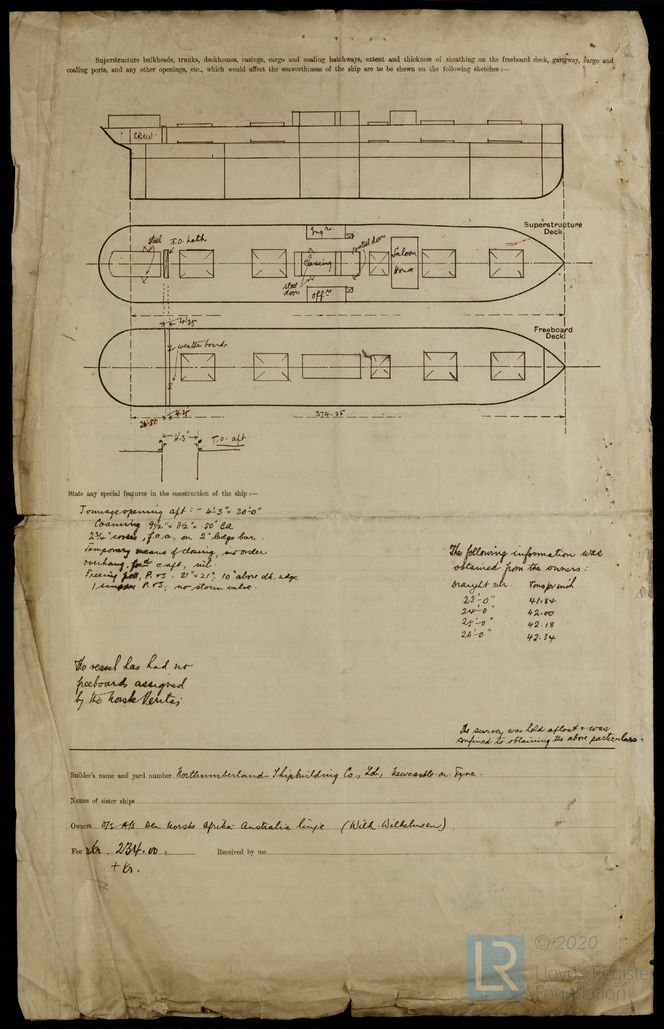 Superstructure bulkheads, trunks, deckhouses, casings, cargo and coaling hatchways, extent and thickness of sheathing on the freeboard deck, gangway, cargo and
coaling ports, and any other openings, etc., which would affect the seaworthiness of the ship are to be shewn on the following sketches :—
CREW
Superstructure
Deck
Steel
T.O. hatch
Engrs
steel door
Casing
Saloon
House
steel
doors
Offrs
4.25
Freeboard
Deck
weather boards
26.50
4.25
374.25
4'-3"
T.O. aft
State any special features in the construction of the ship :—
Tonnage opening aft : - 4'-3" × 20'-0"
Coaming 9½" × 3½" × .50" BA
2¾" covers, f.o.a. on 2" ledge bar.
Temporary means of closing, in order
overhang, for'd & aft, nil.
Freeing port, P. & S. 21" × 21"; 10" above dk. edge
1 scupper P. & S; no storm valve.
The following information was
obtained from the owners :
Draught Tons p inch
23'-0" 41.84
24'-0" 42.00
25'-0" 42.18
26'-0" 42.34
The vessel has had no
freeboards assigned
by the Norske Veritas
The survey was held afloat & was
confined to obtaining the above particulars.
Builder's name and yard number Northumberland Shipbuilding Co., Ld., Newcastle on Tyne.
Names of sister ships
Owners D/S A/S Den Norske Afrika Australie linje (Wilh. Wilhelmsen).
Fee Kr. 234.00 : Received by me
+ Kr.
LR
© 2020
Lloyd's Register
Foundation